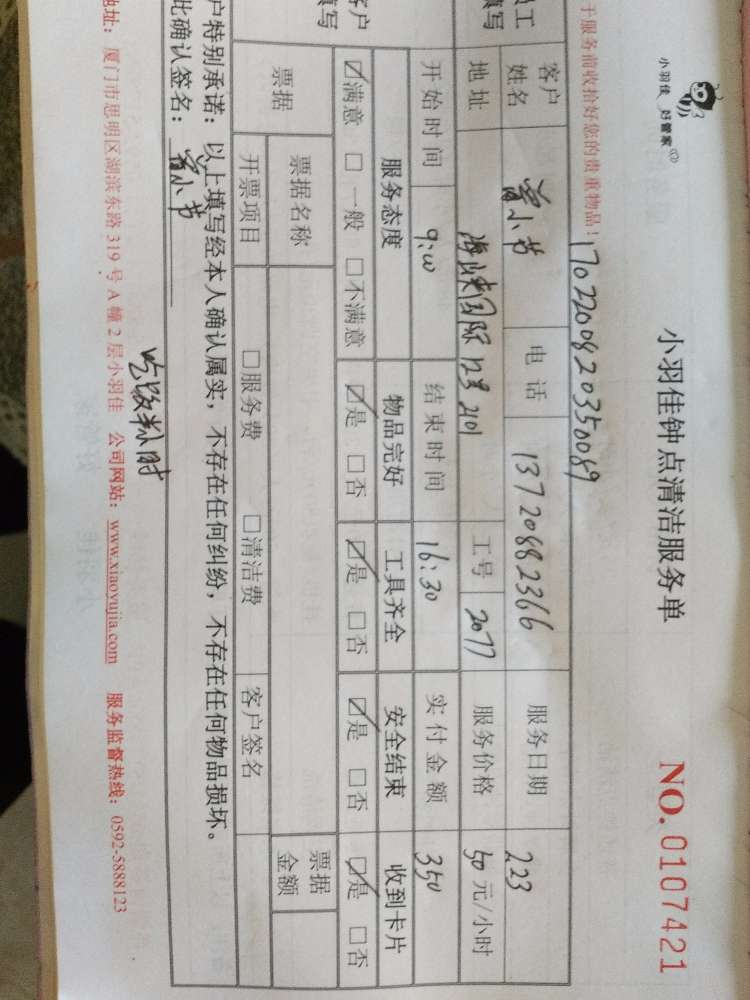 小羽佳 好管家
小羽佳钟点清洁服务单
NO.0107421
于服务前收拾好您的贵重物品!
1702200820350089
客户姓名 电话 13720882366 服务日期 223
地址 海峡国际12号2101 工号 2077 服务价格 50元/小时
开始时间 9:00 结束时间 16:30 实付金额 350
服务态度 物品完好 工具齐全 安全结束 收到卡片
☑满意 □一般 □不满意 ☑是 □否 ☑是 □否 ☑是 □否 ☑是 □否
票据 票据名称 票据金额
开票项目 □服务费 □清洁费 客户签名
户特别承诺:以上填写经本人确认属实,不存在任何纠纷,不存在任何物品损坏。
此确认签名:
吃饭半小时
地址:厦门市思明区湖滨东路319号A幢2层小羽佳 公司网站:www.xiaoyujia.com 服务监督热线:0592-5888123